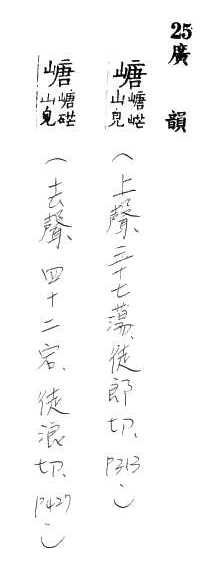 25廣韻
嵣嵣㟐山皃(上聲、三十七蕩、徒郎切、P313。)
嵣嵣硭山皃(去聲、四十二宕、徒浪切、P427。)